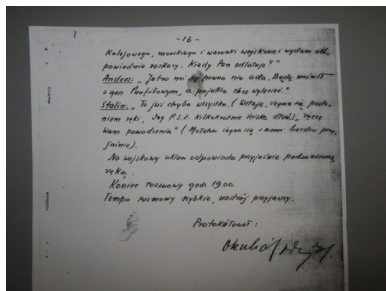 -16-
Kolejowego, morskiego i warunki wojskowe i wydam od-
powiednie rozkazy. Kiedy Pan odlatuje?"
Anders: „Jutro mi się pewno nie uda. Będę mówił
z gen. Panfiłowym, a pojutrze chcę wylecieć."
Stalin: „To już chyba wszystko. (Wstaje, żegna się poda-
niem ręki, kilkakrotnie ściska dłoń) „Życzę
Wam powodzenia" (Mołotow żegna się z nami bardzo przy-
jaźnie).
Na wojskowy ukłon odpowiada przyjaźnie podniesioną
ręką.
Koniec rozmowy godz. 19.00.
Tempo rozmowy szybkie, nastrój przyjazny.
Protokółował: